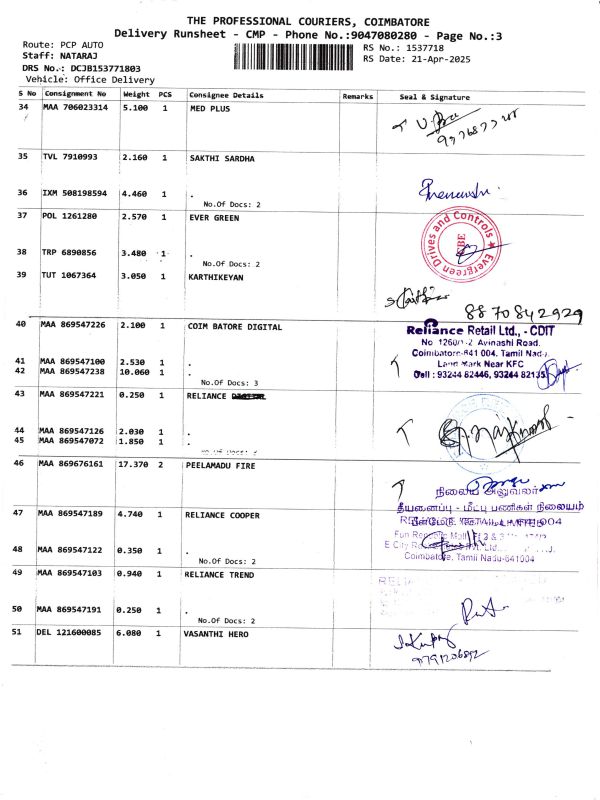 THE PROFESSIONAL COURIERS, COIMBATORE
Delivery Runsheet - CMP - Phone No.:9047080280 - Page No.:3
Route: PCP AUTO
RS No.: 1537718
Staff: NATARAJ
RS Date: 21-Apr-2025
DRS No.: DCJB153771803
Vehicle: Office Delivery
S No Consignment No Weight PCS Consignee Details Remarks Seal & Signature
34 MAA 706023314 5.100 1 MED PLUS
35 TVL 7910993 2.160 1 SAKTHI SARDHA
36 IXM 508198594 4.460 1 .
No.Of Docs: 2
37 POL 1261280 2.570 1 EVER GREEN
Evergreen Drives and Controls
CBE
38 TRP 6890856 3.480 1 .
No.Of Docs: 2
39 TUT 1067364 3.050 1 KARTHIKEYAN
8870842929
40 MAA 869547226 2.100 1 COIM BATORE DIGITAL
Reliance Retail Ltd., - CDIT
No 1260/1-2 Avinashi Road.
Coimbatore-641 004. Tamil Nadu.
Land Mark Near KFC
Cell : 93244 82446, 93244 82135
41 MAA 869547100 2.530 1 .
42 MAA 869547238 10.060 1 .
No.Of Docs: 3
43 MAA 869547221 0.250 1 RELIANCE
44 MAA 869547126 2.030 1 .
45 MAA 869547072 1.850 1 .
No.Of Docs: 3
46 MAA 869676161 17.370 2 PEELAMADU FIRE
நிலைய அலுவலர்
தீயணைப்பு - மீட்பு பணிகள் நிலையம்
47 MAA 869547189 4.740 1 RELIANCE COOPER
Coimbatore, Tamil Nadu-641004
48 MAA 869547122 0.350 1 .
No.Of Docs: 2
49 MAA 869547103 0.940 1 RELIANCE TREND
50 MAA 869547191 0.250 1 .
No.Of Docs: 2
51 DEL 121600085 6.080 1 VASANTHI HERO